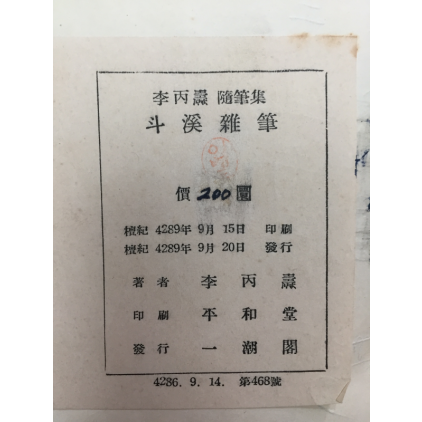 李丙燾 隨筆集
斗溪雜筆
價 200 圜
檀紀 4289年 9月 15日 印刷
檀紀 4289年 9月 20日 發行
著者 李丙燾
印刷 平和堂
發行 一潮閣
4286. 9. 14. 第468號